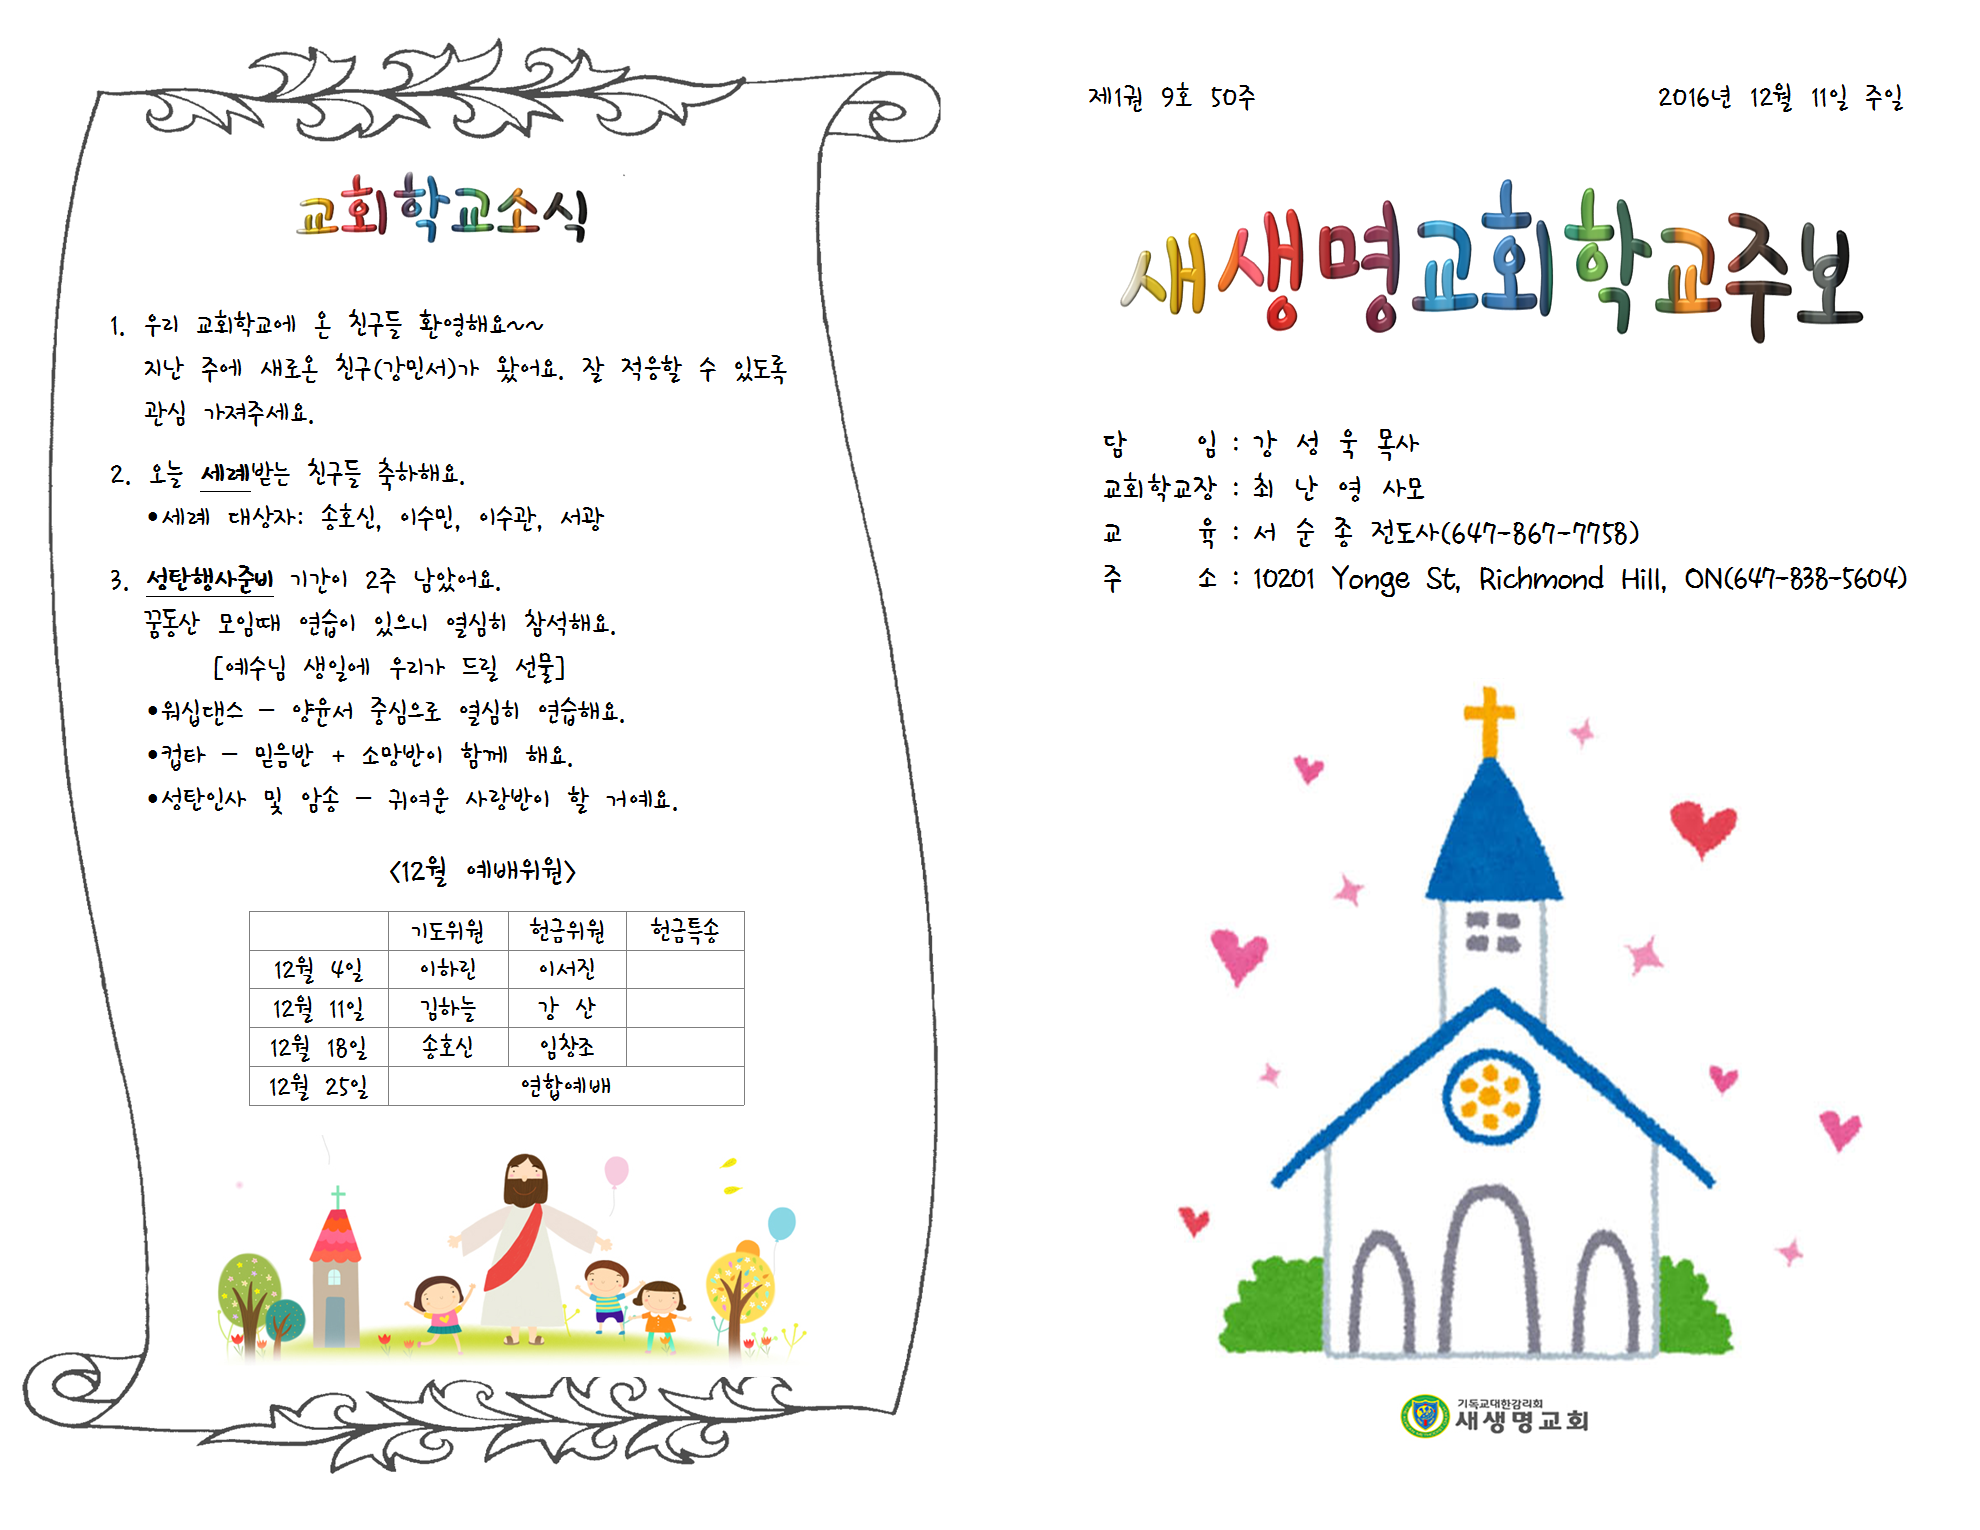 교회학교소식
1. 우리 교회학교에 온 친구들 환영해요~~
지난 주에 새로온 친구(강민서)가 왔어요. 잘 적응할 수 있도록
관심 가져주세요.
2. 오늘 세례받는 친구들 축하해요.
•세례 대상자: 송호신, 이수민, 이수관, 서광
3. 성탄행사준비 기간이 2주 남았어요.
꿈동산 모임때 연습이 있으니 열심히 참석해요.
[예수님 생일에 우리가 드릴 선물]
•워십댄스 - 양윤서 중심으로 열심히 연습해요.
•컵타 - 믿음반 + 소망반이 함께 해요.
•성탄인사 및 암송 - 귀여운 사랑반이 할 거예요.
<12월 예배위원>
기도위원 헌금위원 헌금특송
12월 4일 이하린 이서진
12월 11일 김하늘 강 산
12월 18일 송호신 임창조
12월 25일 연합예배
제1권 9호 50주 2016년 12월 11일 주일
새생명교회학교주보
담 임 : 강 성 욱 목사
교회학교장 : 최 난 영 사모
교 육 : 서 순 종 전도사(647-867-7758)
주 소 : 10201 Yonge St, Richmond Hill, ON(647-838-5604)
기독교대한감리회
새생명교회